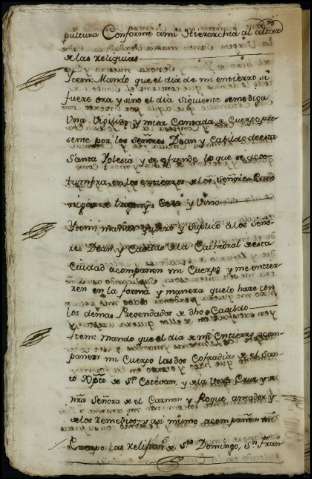 pultura Conforme a mi Hierarchia al
de las Religiosas
Yten Mando que el dia de mi entierro si
fuere ora y sino el dia siguiente se me diga
Una Vigilia y misa Cantada de Cuerpo pre
sente por los Señores Dean y Cabildo de esta
Santa Iglesia y se ofrende lo que se acos
tumbra en los entierros de los Señores Preve
de Cera y Vino
Yten mando y Suplico a los Seño
res Dean y Cabildo de la Cathedral de esta
Ciudad acompañen mi Cuerpo y me entier
ren en la forma y manera que lo hacen con
los demas Prevendados de dho Cabildo
Yten mando que el dia de mi Entierro acom
pañen mi Cuerpo las dos Cofradias de el San
to Xpto de Sn Estevan, y de la Vera Cruz, y de
nra Señora de el Carmen y Roque
de los Remedios y asi mismo acompañen mi
Cuerpo las Religiones de Sto Domingo, Sn Fran